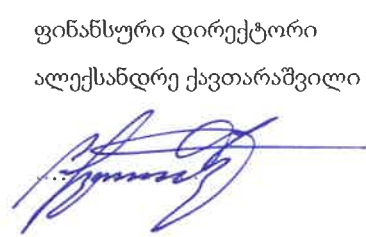 ფინანსური დირექტორი
ალექსანდრე ქავთარაშვილი